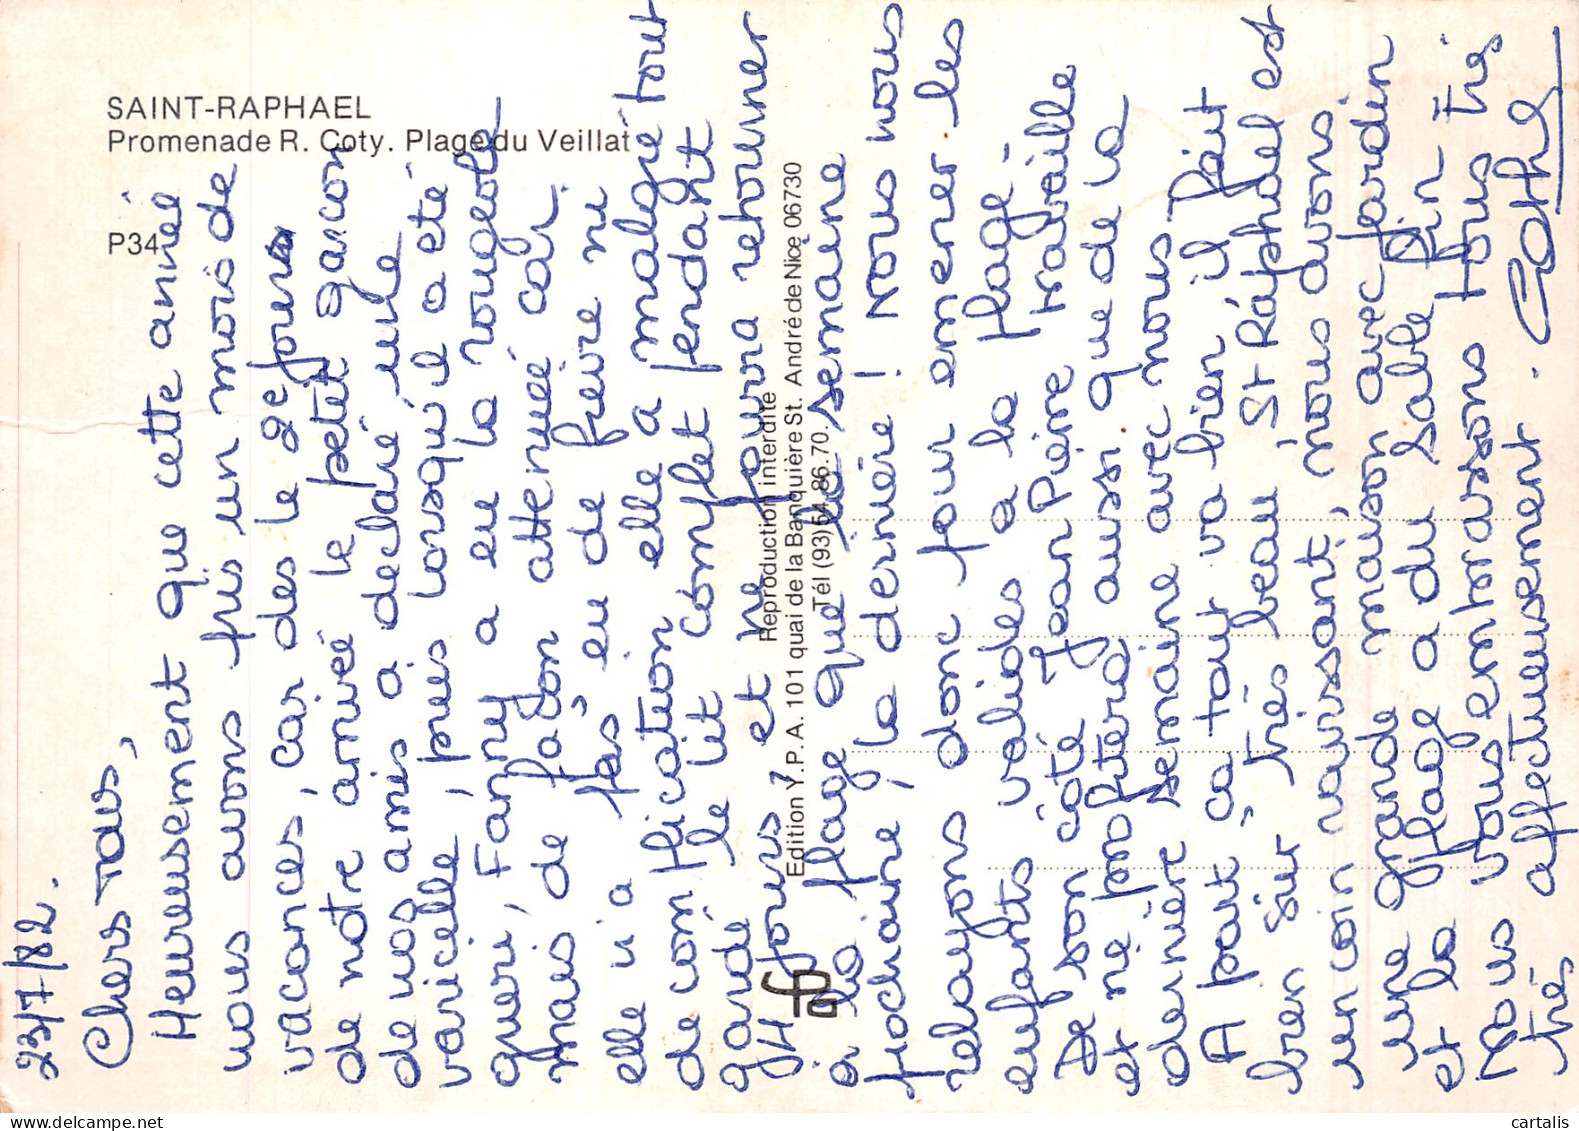 SAINT-RAPHAEL
Promenade R. Coty. Plage du Veillat
P34
Reproduction interdite
Edition Y.P.A. 101 quai de la Banquière St. André de Nice 06730
Tél (93) 54.86.70.
23/7/82.
Chers Tous,
Heureusement que cette année
nous avons pris un mois de
vacances, car dès le 2e jour
de notre arrivée le petit garcon
de nos amis a déclaré une
varicelle, puis lorsqu'il a été
gueri, Fanny a eu la rougeole
mais de façon attenuée car
elle n'a pas eu de fièvre ni
de complication elle a malgré tout
gardé le lit complet pendant
4 jours et ne pourra retourner
à la plage que la semaine
prochaine, la dernière ! Nous nous
relayons donc pour emener les
enfants valides à la plage.
De son côté Jean Pierre travaille
et ne profitera aussi que de la
dernière semaine avec nous
A part ça tout va bien il fait
bien sûr très beau, St Raphael est
un coin ravissant, nous avons
une grande maison avec jardin
et la plage a du sable fin
Nous vous embrassons tous très
très affectueusement.
cartalis